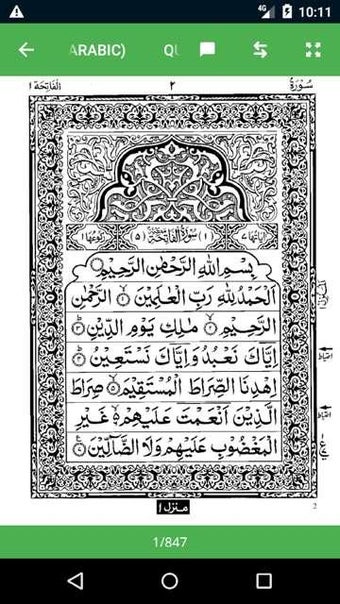 4G 10:11
ARABIC) QU
سُورَةُ ٢ الْفَاتِحَة ١
اٰيَاتُهَا ٧ (١) سُوْرَةُ الْفَاتِحَةِ (٥) رُكُوْعُهَا ١
بِسْمِ اللهِ الرَّحْمٰنِ الرَّحِيْمِ
اَلْحَمْدُ لِلّٰهِ رَبِّ الْعٰلَمِيْنَ ۙ﴿١﴾ الرَّحْمٰنِ
الرَّحِيْمِ ۙ﴿٢﴾ مٰلِكِ يَوْمِ الدِّيْنِ ؕ﴿٣﴾
اِيَّاكَ نَعْبُدُ وَاِيَّاكَ نَسْتَعِيْنُ ؕ﴿٤﴾
اِهْدِنَا الصِّرَاطَ الْمُسْتَقِيْمَ ۙ﴿٥﴾ صِرَاطَ
الَّذِيْنَ اَنْعَمْتَ عَلَيْهِمْ ۙ﴿٦﴾ غَيْرِ
الْمَغْضُوْبِ عَلَيْهِمْ وَلَا الضَّآلِّيْنَ ﴿٧﴾
منزل ١
2
1/847